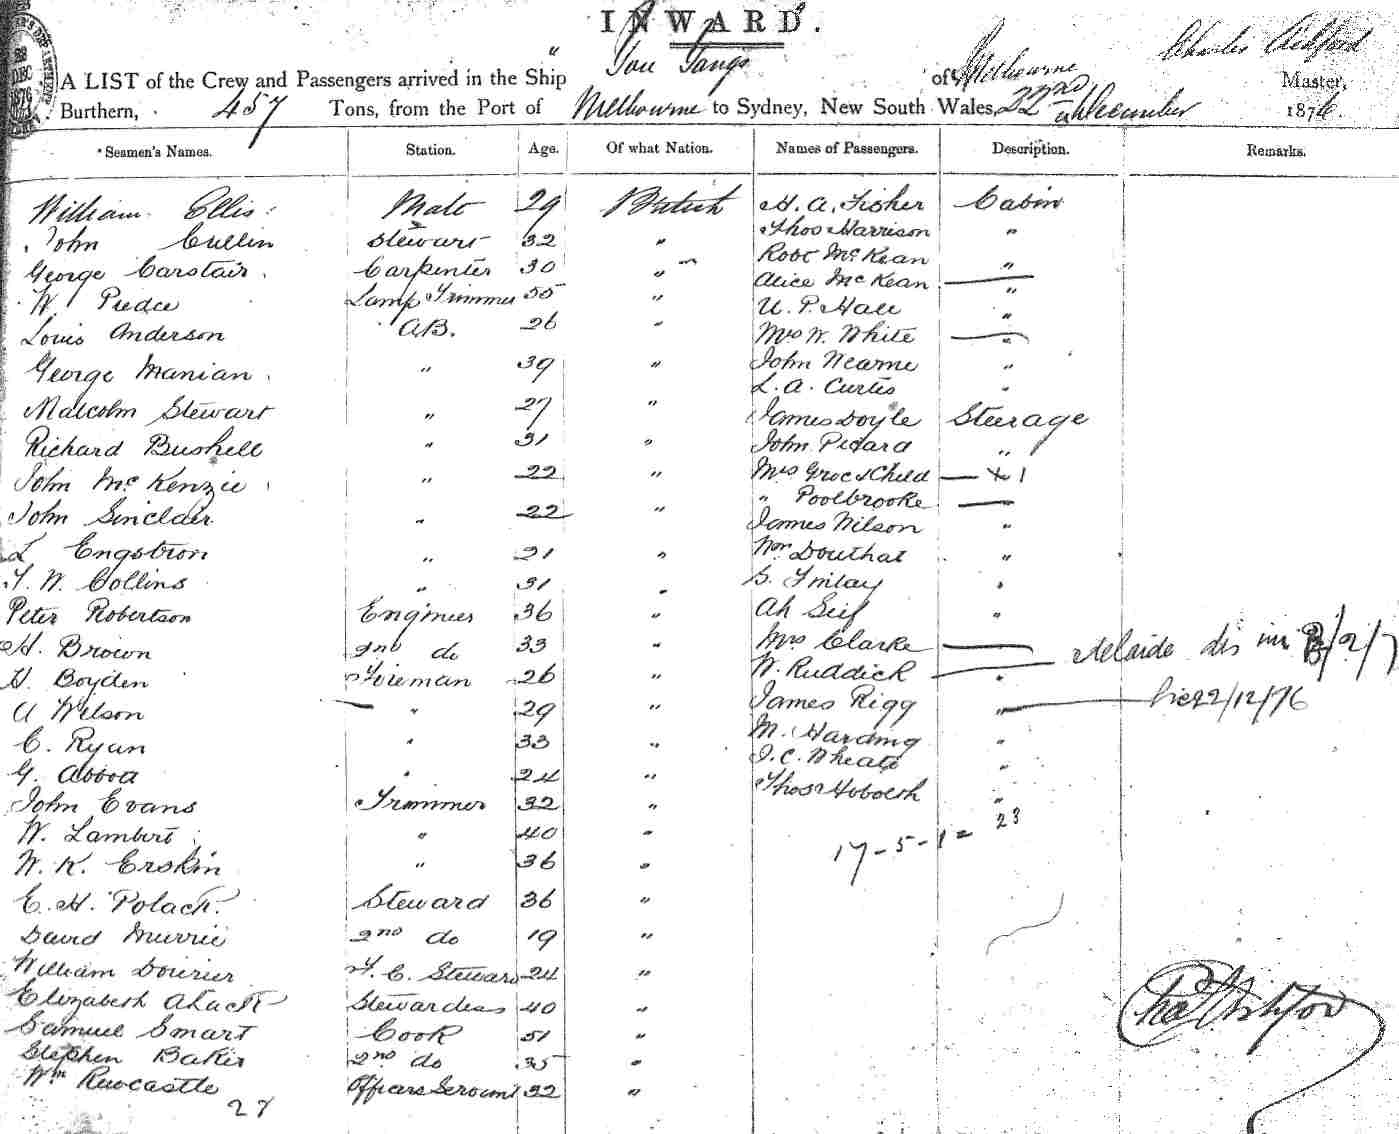 INWARD.
A LIST of the Crew and Passengers arrived in the Ship " You Yangs of Melbourne Charles Ashford Master,
Burthern, 457 Tons, from the Port of Melbourne to Sydney, New South Wales, 22nd December 1876.
*Seamen's Names. Station. Age. Of what Nation. Names of Passengers. Description. Remarks.
William Ellis Mate 29 British H. A. Fisher Cabin
John Cullin Stewart 32 " Thos Harrison "
George Carstair Carpenter 30 " Robt McKean "
W. Lamp Trimmer 55 " Alice McKean "
Louis Anderson A.B. 26 " U. P. Hall "
Mrs W. White "
George Manian " 39 " John Nearne "
L. A. Curtis "
Malcolm Stewart " 27 " James Doyle Steerage
Richard Bushell " 31 " John Picard "
John McKenzie " 22 " Mrs & Child 1
" Poolbrooke
John Sinclair " 22 " James Wilson "
L Engstron " 21 " Wm Douthat "
W. Collins " 31 " Finlay "
Peter Robertson Engineer 36 " Ah "
H. Brown 2nd do 33 " Mrs Clarke Adelaide
H. Boyden Fireman 26 " W. Ruddick "
A Wilson " 29 " James Rigg " 22/12/76
C. Ryan " 33 " M. Harding "
G. Abboa " 24 " J. C. Wheate "
John Evans Trimmer 32 " Thos "
W. Lambert " 40 " 17-5-1= 23
W. K. Erskin " 36 "
E. H. Polack Steward 36 "
David Murrie 2nd do 19 "
William F. C. Steward 24 "
Elizabeth Stewardess 40 "
Samuel Smart Cook 51 "
Stephen Baker 2nd do 35 "
Wm Rewcastle Officers Servant 32 "
Chas Ashford